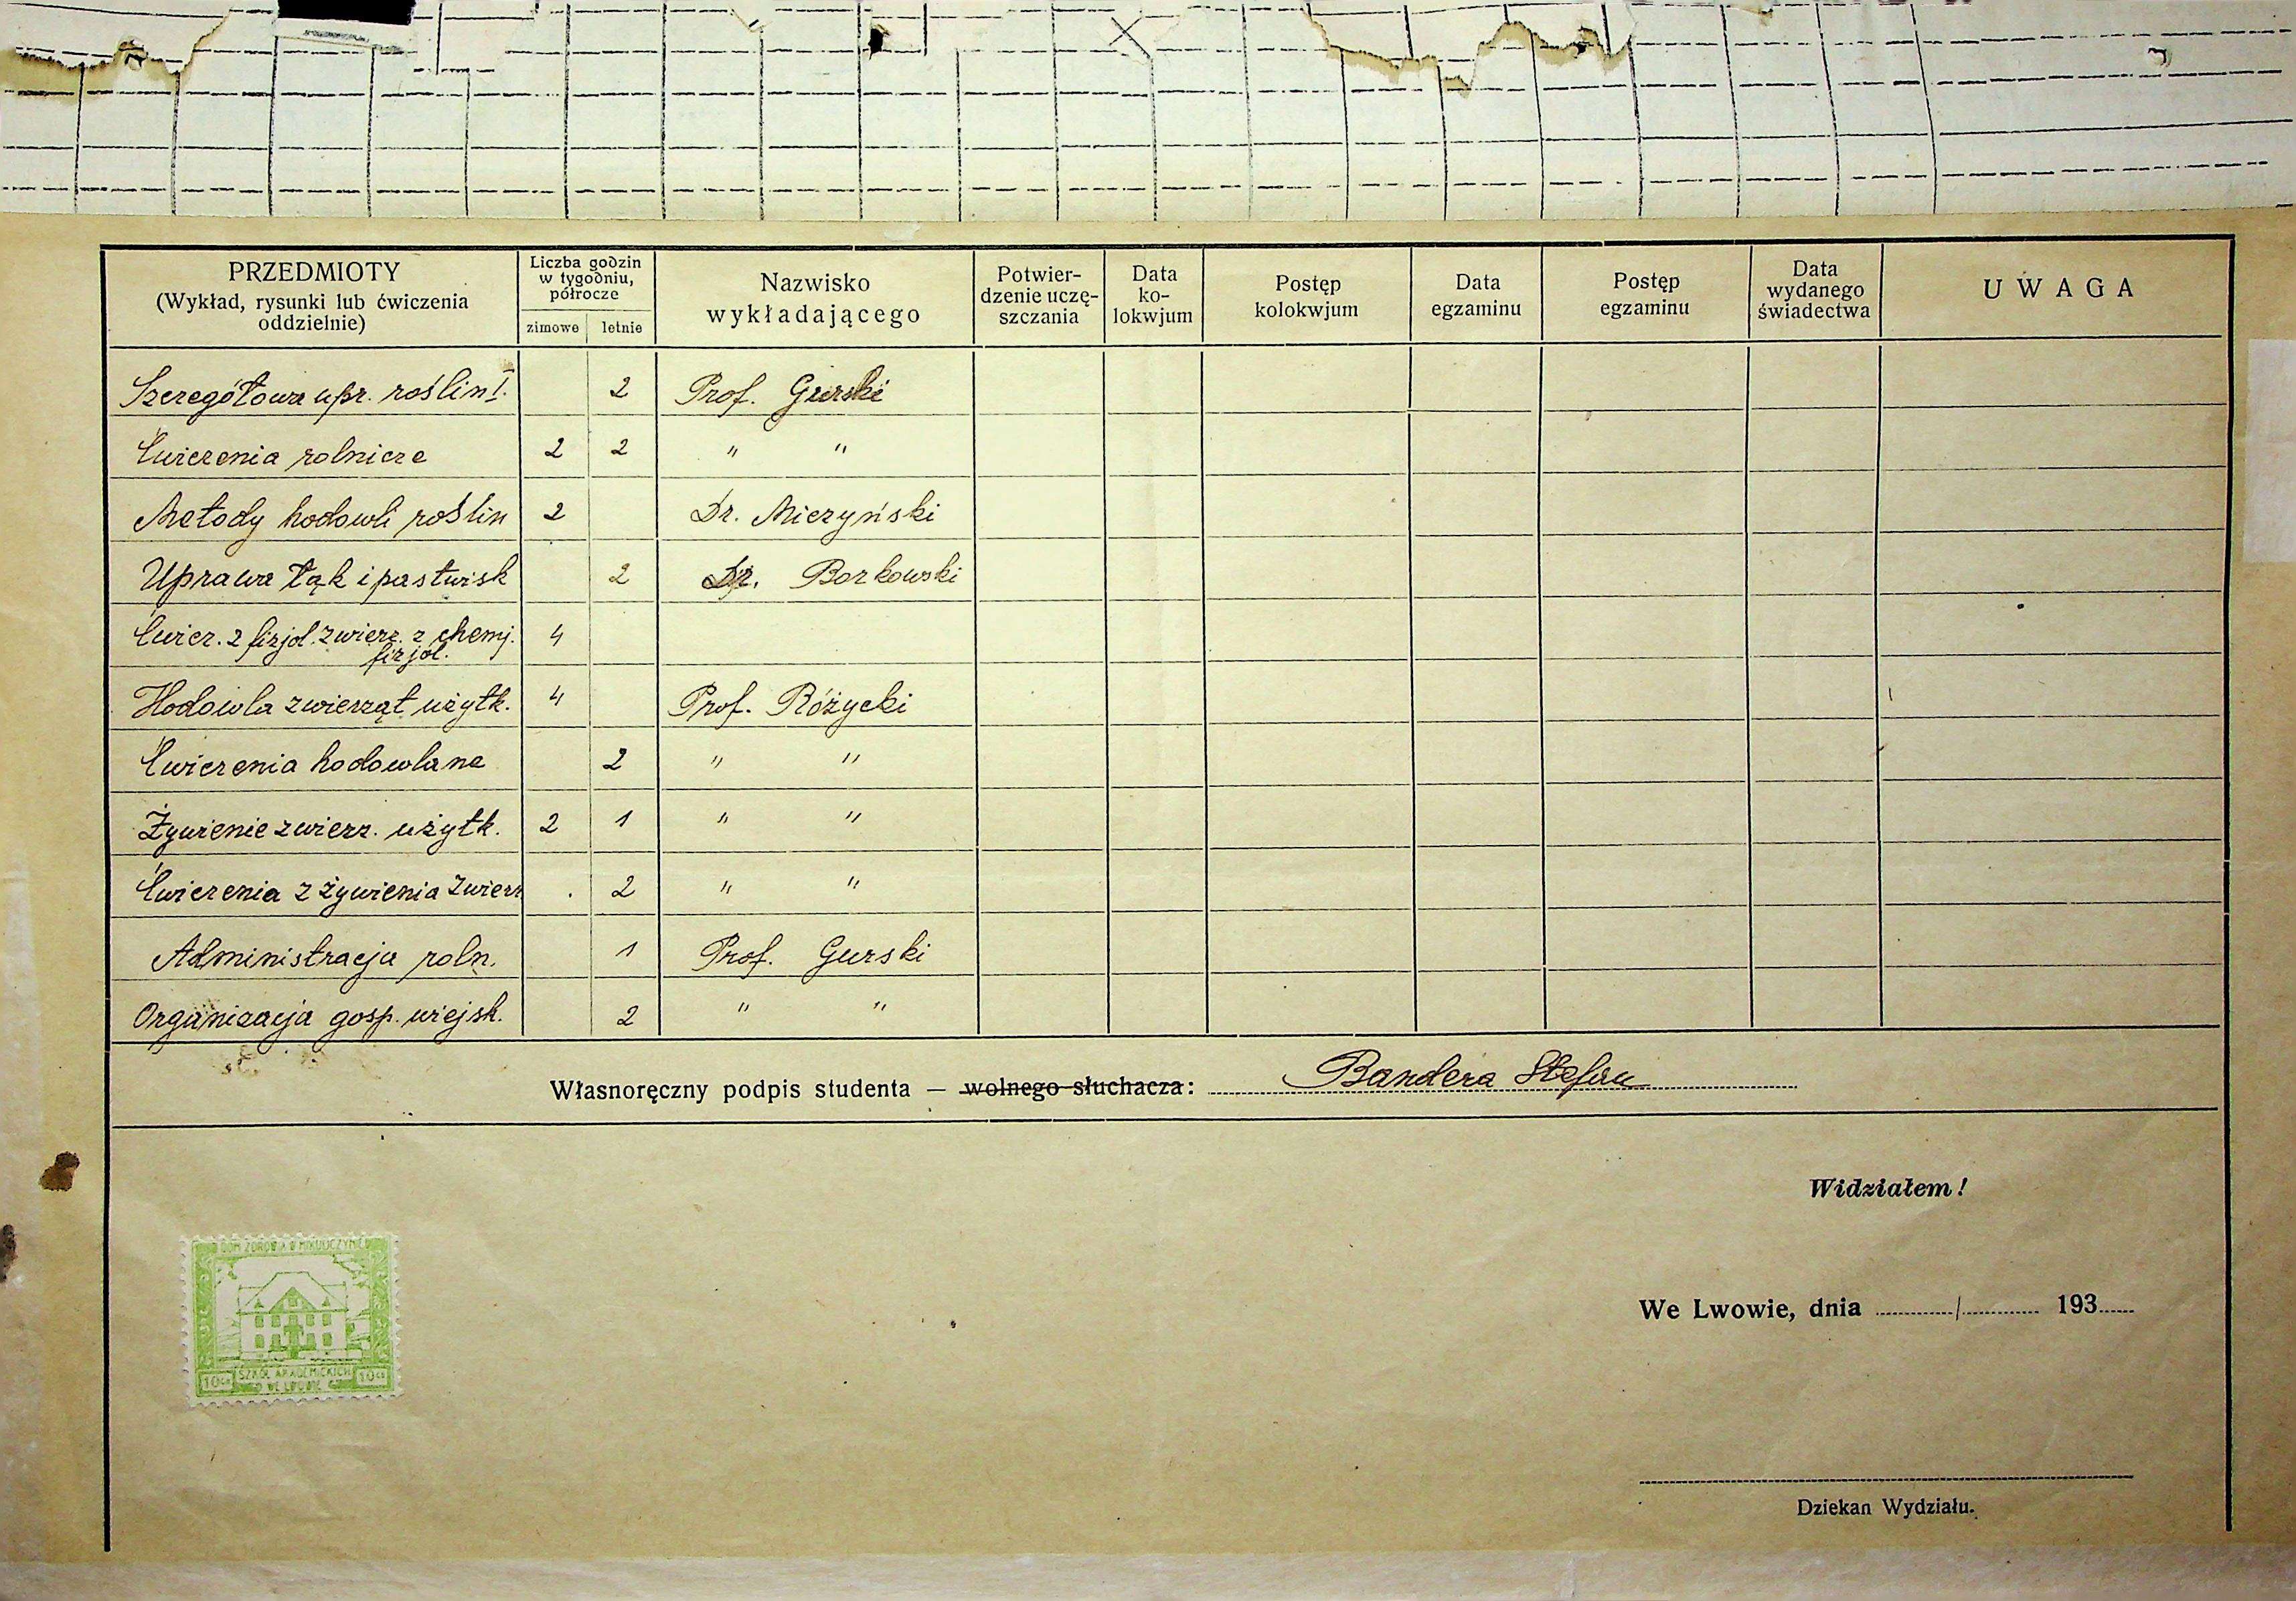 PRZEDMIOTY
(Wykład, rysunki lub ćwiczenia
oddzielnie)
Liczba godzin
w tygodniu,
półrocze
zimowe letnie
Nazwisko
wykładającego
Potwier-
dzenie uczę-
szczania
Data
ko-
lokwjum
Postęp
kolokwjum
Data
egzaminu
Postęp
egzaminu
Data
wydanego
świadectwa
UWAGA
Szczegółowa upr. roślin I. 2 Prof. Gurski
Ćwiczenia rolnicze 2 2 " "
Metody hodowli roślin 2 Dr. Miczyński
Uprawa łąk i pastwisk 2 Dr. Borkowski
Ćwicz. z fizjol. zwierz. z chemj. 4
fizjol.
Hodowla zwierząt użytk. 4 Prof. Różycki
Ćwiczenia hodowlane 2 " "
Żywienie zwierz. użytk. 2 1 " "
Ćwiczenia z żywienia zwierz 2 " "
Administracja roln. 1 Prof. Gurski
Organizacja gosp. wiejsk. 2 " "
Własnoręczny podpis studenta — wolnego słuchacza: Bandera Stefan
Widziałem!
DOM ZDROWIA W MIKULICZYNIE
10 SZKÓŁ AKADEMICKICH 10
WE LWOWIE
We Lwowie, dnia / 193
Dziekan Wydziału.